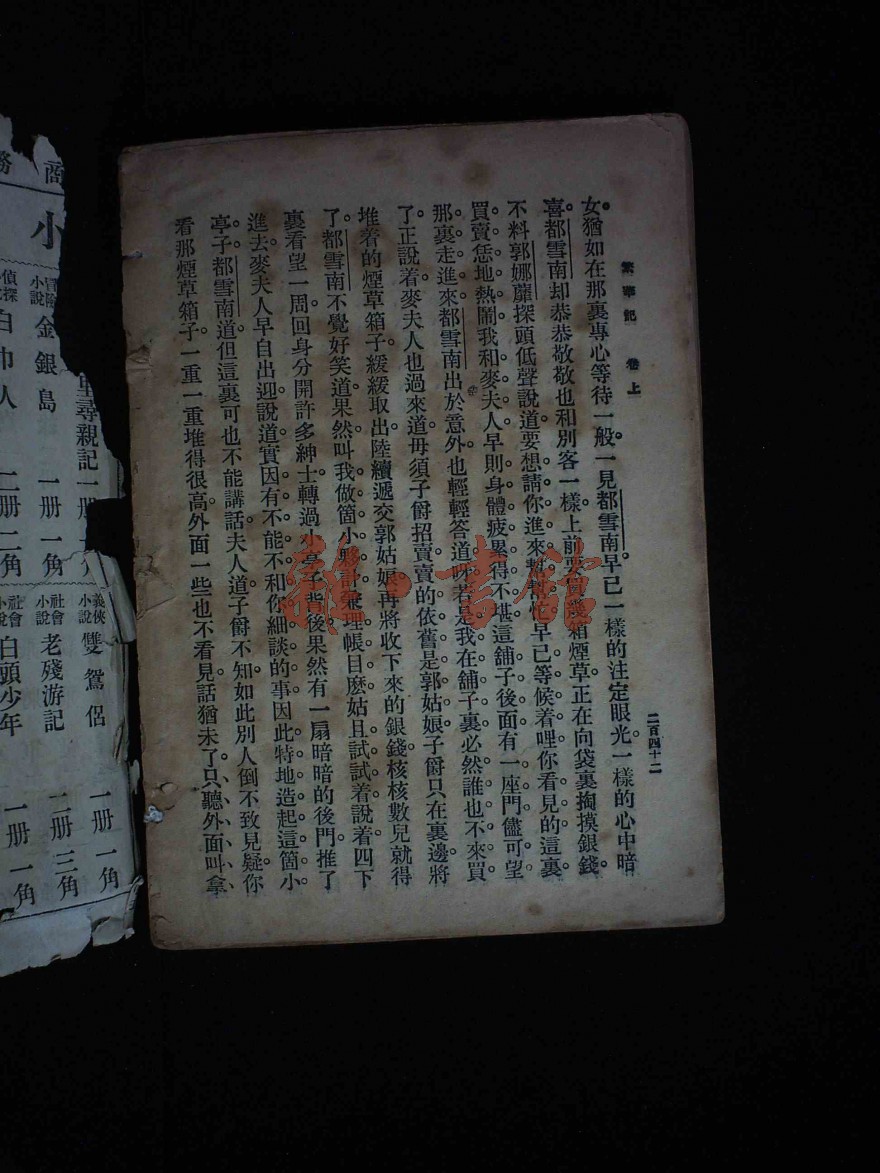 繁華記　卷上
二百四十二
女。猶如在那裏專心等待一般。一見都雪南。早已一樣的注定眼光。一樣的心中暗
喜。都雪南却恭恭敬敬。也和別客一樣。上前要買幾箱煙草。正在向袋裏掏摸銀錢。
不料郭娜蘼探頭低聲說道。要想請你進來幫幫忙。早已等候着哩。你看見的。這裏
買賣恁地熱鬧。我和麥夫人早則身體疲累得不堪。這舖子後面有一座門。儘可望
那裏走進來。都雪南出於意外。也輕輕答道。咏。若是我在舖子裏。必然誰也不來買
了。正說着。麥夫人也過來道。毋須子爵招賣。賣的依舊是郭姑娘。子爵只在裏邊將
堆着的煙草箱子。緩緩取出。陸續遞交郭姑娘。再將收下來的銀錢。核核數兒就得
了。都雪南不覺好笑道。果然叫我做箇小夥計兼理帳目麽。姑且試試着。說着四下
裏看望一周。回身分開許多紳士。轉過小亭子背後。果然有一扇暗暗的後門。推了
進去。麥夫人早自出迎。說道。實因有不能不和你細談的事。因此特地造起這箇小
亭子。都雪南道。但這裏可也不能講話。夫人道。子爵不知。如此別人倒不致見疑。你
看那煙草箱子。一重一重堆得很高。外面一些也不看見。話猶未了。只聽外面叫拿、
商務
小
里尋親記　一册
冒險小說　金銀島　一册　一角
偵探　白巾人　一册　二角
義俠小說　雙鴛侶　一册　一角
社會小說　老殘游記　二册　三角
社會小說　白頭少年　一册　一角
書館